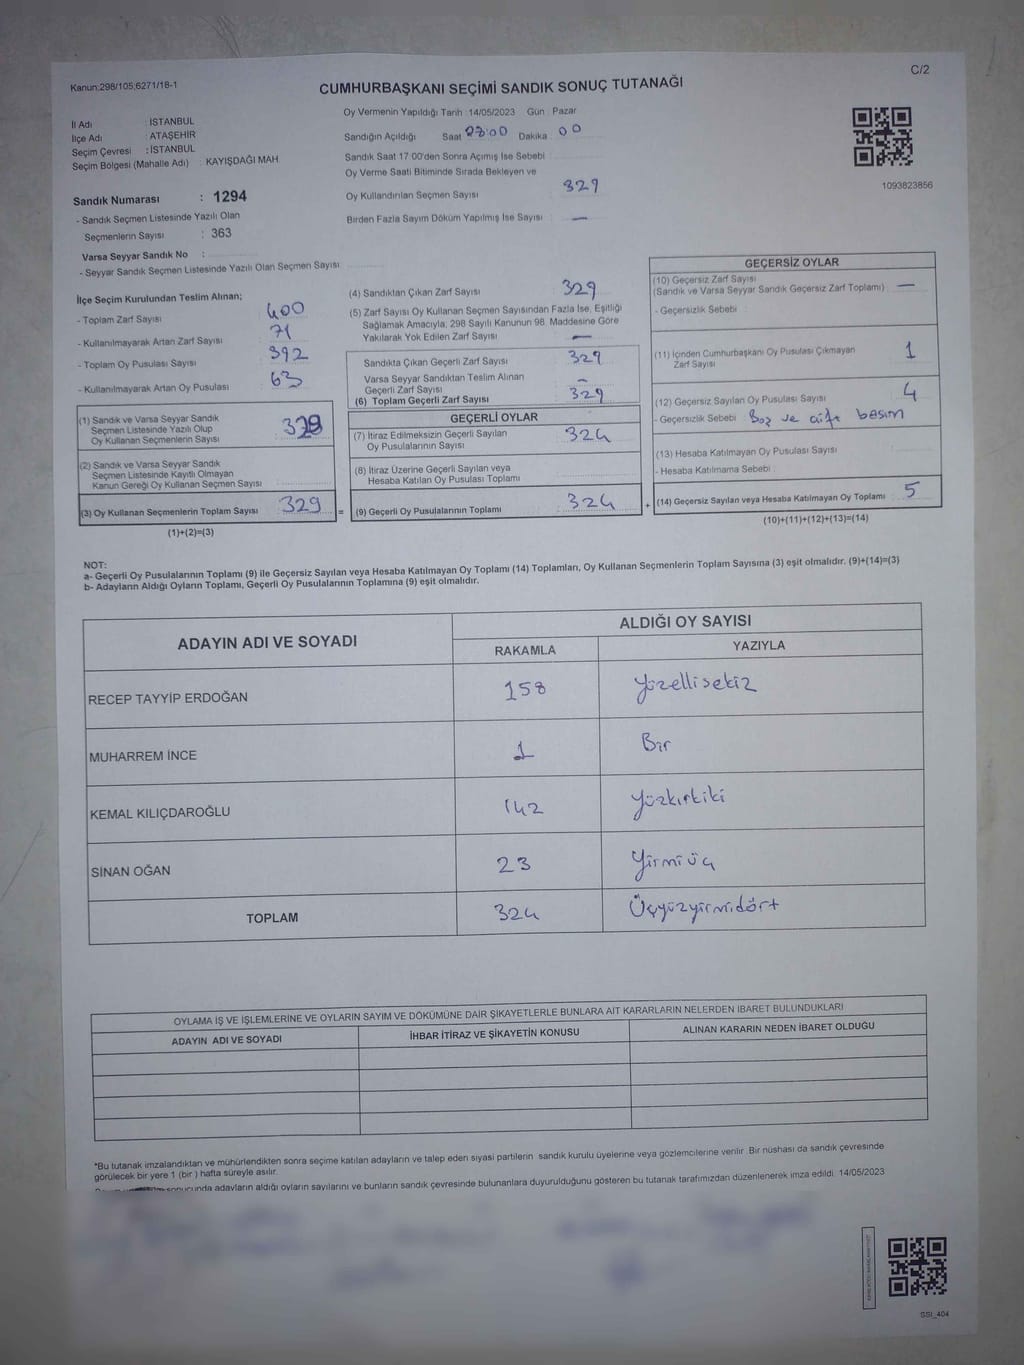 Kanun:298/105;6271/18-1
C/2
CUMHURBAŞKANI SEÇİMİ SANDIK SONUÇ TUTANAĞI
İl Adı : İSTANBUL
İlçe Adı : ATAŞEHİR
Seçim Çevresi : İSTANBUL
Seçim Bölgesi (Mahalle Adı) : KAYIŞDAĞI MAH.
Sandık Numarası : 1294
- Sandık Seçmen Listesinde Yazılı Olan
Seçmenlerin Sayısı : 363
Varsa Seyyar Sandık No :
- Seyyar Sandık Seçmen Listesinde Yazılı Olan Seçmen Sayısı
Oy Vermenin Yapıldığı Tarih :14/05/2023 Gün : Pazar
Sandığın Açıldığı Saat 08:00 Dakika 00
Sandık Saat 17:00'den Sonra Açımış İse Sebebi
Oy Verme Saati Bitiminde Sırada Bekleyen ve
Oy Kullandırılan Seçmen Sayısı 329
Birden Fazla Sayım Döküm Yapılmış İse Sayısı —
1093823856
İlçe Seçim Kurulundan Teslim Alınan;
- Toplam Zarf Sayısı 400
- Kullanılmayarak Artan Zarf Sayısı 71
- Toplam Oy Pusulası Sayısı 392
- Kullanılmayarak Artan Oy Pusulası 63
(1) Sandık ve Varsa Seyyar Sandık
Seçmen Listesinde Yazılı Olup
Oy Kullanan Seçmenlerin Sayısı 329
(2) Sandık ve Varsa Seyyar Sandık
Seçmen Listesinde Kayıtlı Olmayan
Kanun Gereği Oy Kullanan Seçmen Sayısı
(3) Oy Kullanan Seçmenlerin Toplam Sayısı 329 =
(1)+(2)=(3)
(4) Sandıktan Çıkan Zarf Sayısı 329
(5) Zarf Sayısı Oy Kullanan Seçmen Sayısından Fazla İse, Eşitliği
Sağlamak Amacıyla, 298 Sayılı Kanunun 98. Maddesine Göre
Yakılarak Yok Edilen Zarf Sayısı —
Sandıkta Çıkan Geçerli Zarf Sayısı 329
Varsa Seyyar Sandıktan Teslim Alınan
Geçerli Zarf Sayısı —
(6) Toplam Geçerli Zarf Sayısı 329
GEÇERLİ OYLAR
(7) İtiraz Edilmeksizin Geçerli Sayılan
Oy Pusulalarının Sayısı 324
(8) İtiraz Üzerine Geçerli Sayılan veya
Hesaba Katılan Oy Pusulası Toplamı
(9) Geçerli Oy Pusulalarının Toplamı 324 +
GEÇERSİZ OYLAR
(10) Geçersiz Zarf Sayısı
(Sandık ve Varsa Seyyar Sandık Geçersiz Zarf Toplamı) —
- Geçersizlik Sebebi :
(11) İçinden Cumhurbaşkanı Oy Pusulası Çıkmayan
Zarf Sayısı 1
(12) Geçersiz Sayılan Oy Pusulası Sayısı 4
- Geçersizlik Sebebi : Boş ve çift basım
(13) Hesaba Katılmayan Oy Pusulası Sayısı
- Hesaba Katılmama Sebebi :
(14) Geçersiz Sayılan veya Hesaba Katılmayan Oy Toplamı 5
(10)+(11)+(12)+(13)=(14)
NOT:
a- Geçerli Oy Pusulalarının Toplamı (9) ile Geçersiz Sayılan veya Hesaba Katılmayan Oy Toplamı (14) Toplamları, Oy Kullanan Seçmenlerin Toplam Sayısına (3) eşit olmalıdır. (9)+(14)=(3)
b- Adayların Aldığı Oyların Toplamı, Geçerli Oy Pusulalarının Toplamına (9) eşit olmalıdır.
ADAYIN ADI VE SOYADI ALDIĞI OY SAYISI
RAKAMLA YAZIYLA
RECEP TAYYİP ERDOĞAN 158 Yüzellisekiz
MUHARREM İNCE 1 Bir
KEMAL KILIÇDAROĞLU 142 Yüzkırkiki
SİNAN OĞAN 23 Yirmiüç
TOPLAM 324 Üçyüzyirmidört
OYLAMA İŞ VE İŞLEMLERİNE VE OYLARIN SAYIM VE DÖKÜMÜNE DAİR ŞİKAYETLERLE BUNLARA AİT KARARLARIN NELERDEN İBARET BULUNDUKLARI
ADAYIN ADI VE SOYADI İHBAR İTİRAZ VE ŞİKAYETİN KONUSU ALINAN KARARIN NEDEN İBARET OLDUĞU
*Bu tutanak imzalandıktan ve mühürlendikten sonra seçime katılan adayların ve talep eden siyasi partilerin sandık kurulu üyelerine veya gözlemcilerine verilir. Bir nüshası da sandık çevresinde
görülecek bir yere 1 (bir ) hafta süreyle asılır.
sonucunda adayların aldığı oyların sayılarını ve bunların sandık çevresinde bulunanlara duyurulduğunu gösteren bu tutanak tarafımızdan düzenlenerek imza edildi. 14/05/2023
SSI_404